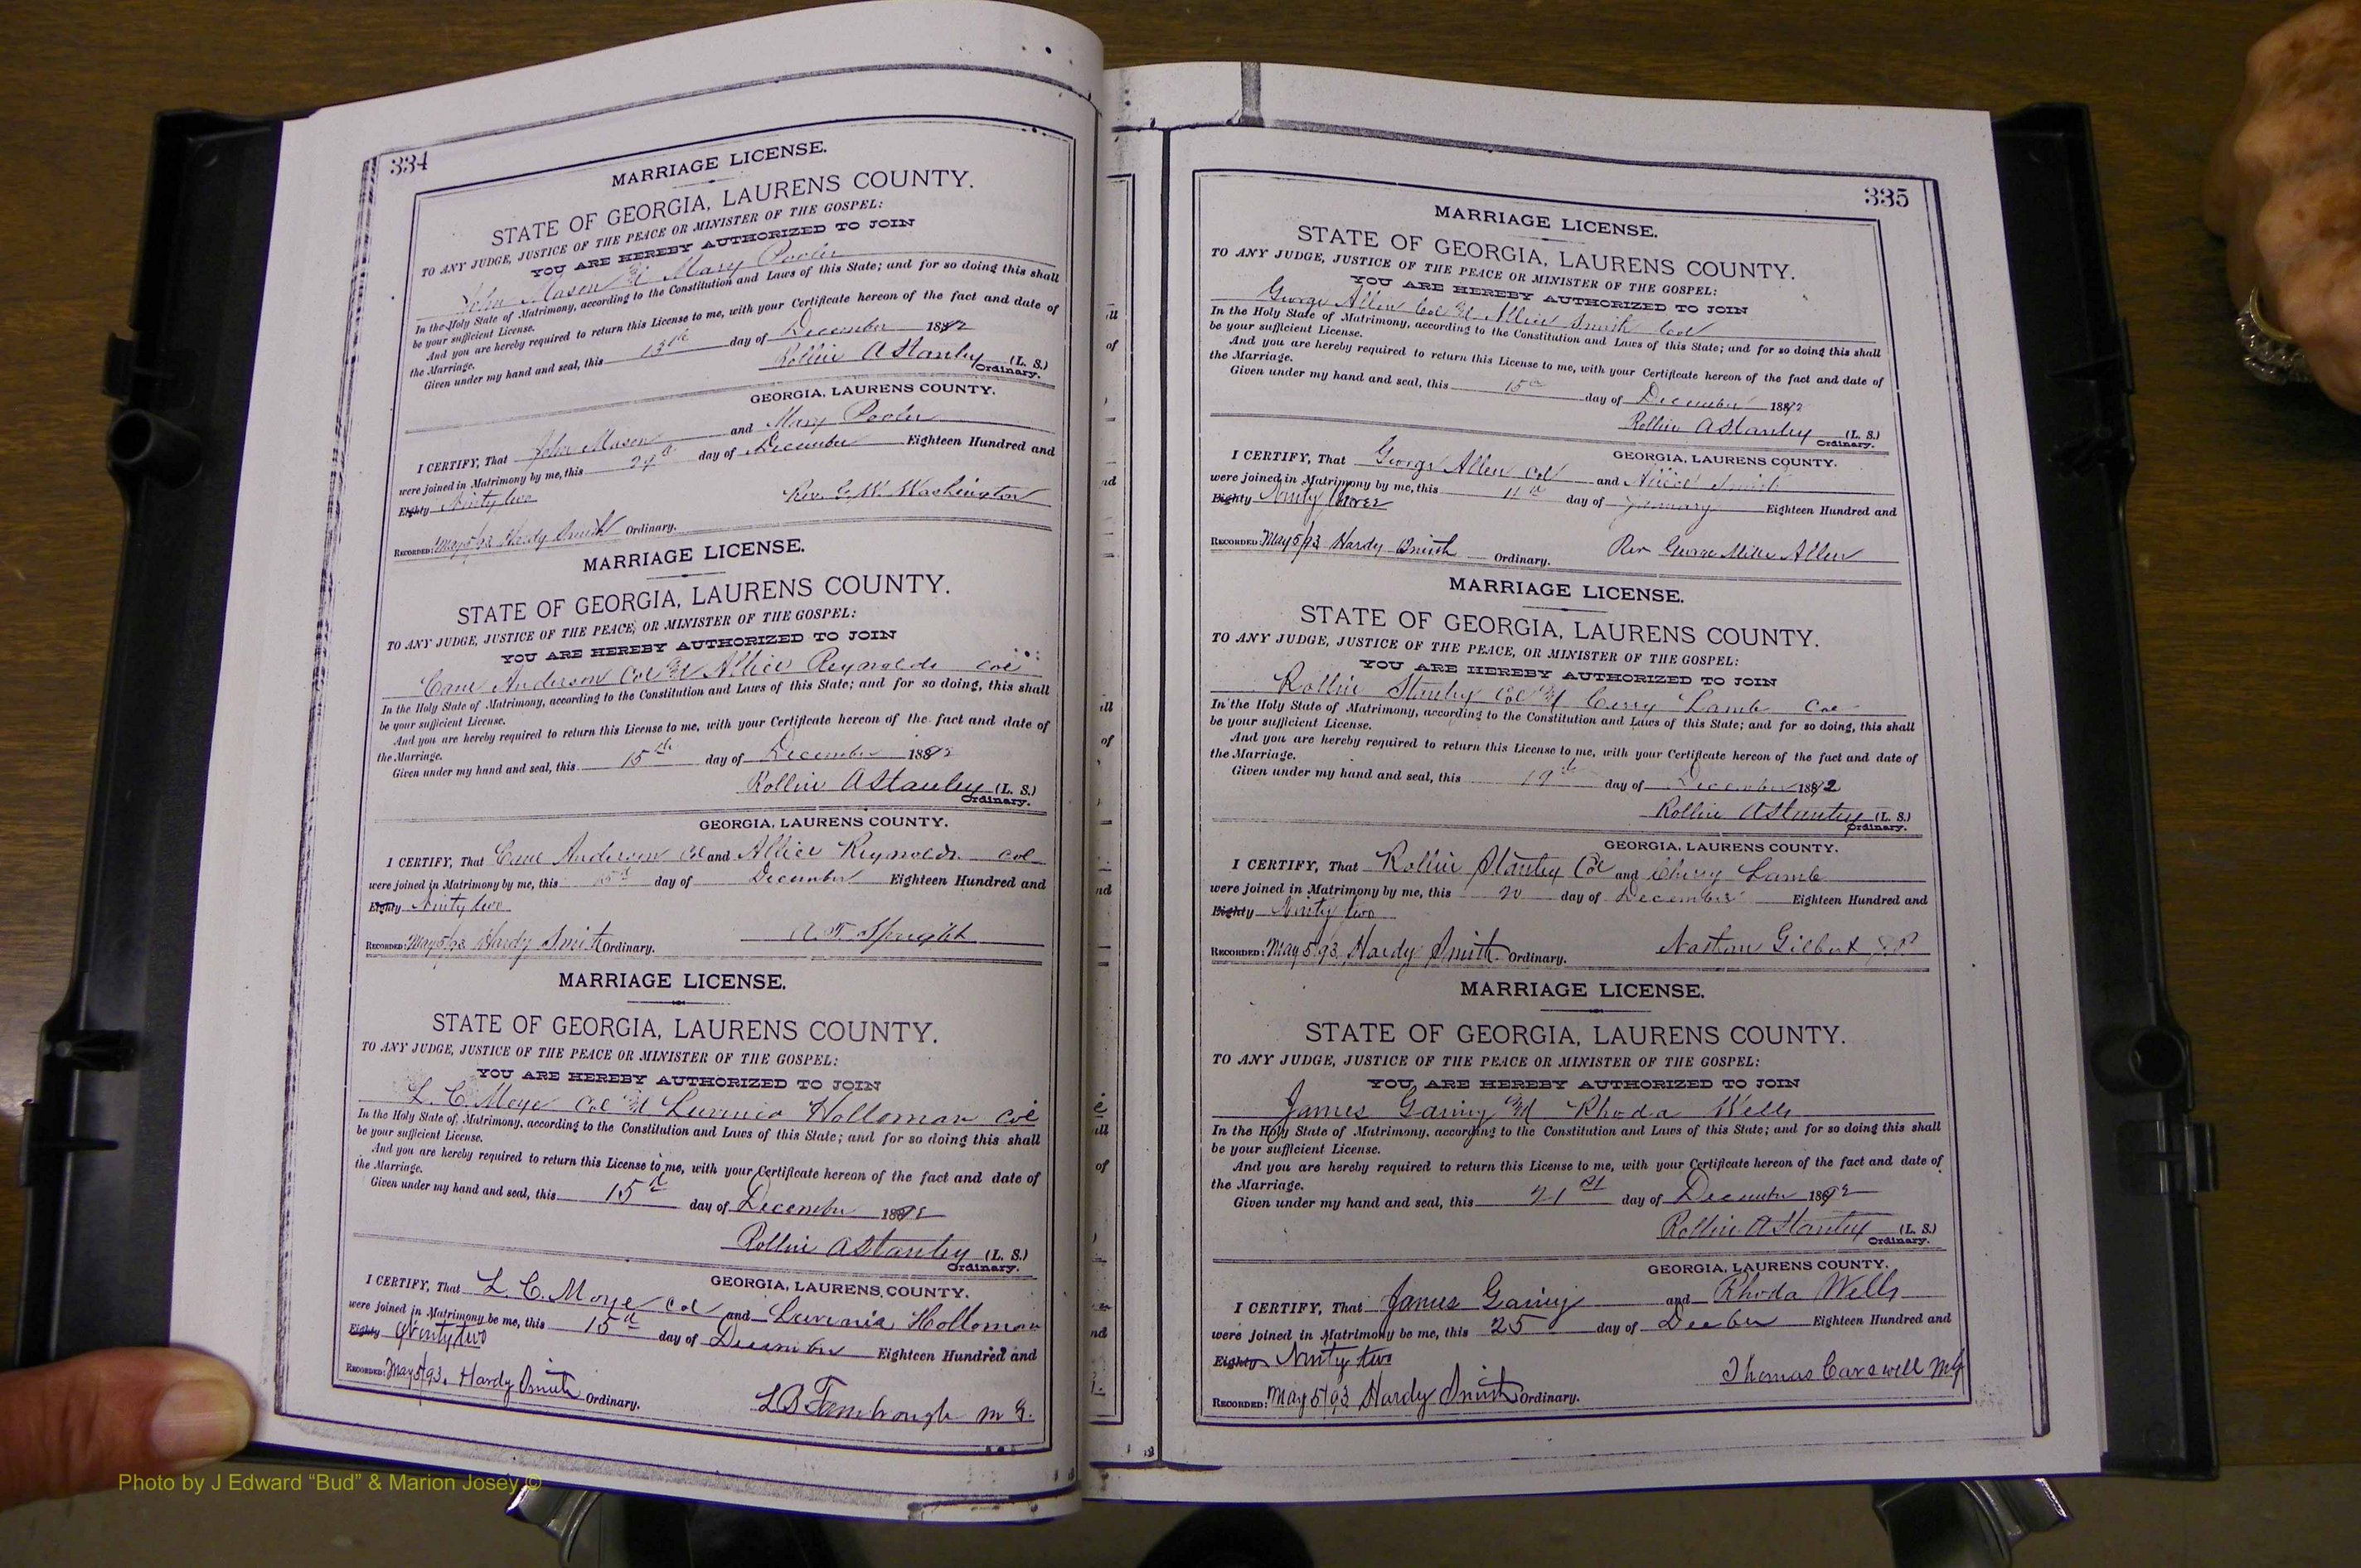 334
MARRIAGE LICENSE.
STATE OF GEORGIA, LAURENS COUNTY.
TO ANY JUDGE, JUSTICE OF THE PEACE OR MINISTER OF THE GOSPEL:
YOU ARE HEREBY AUTHORIZED TO JOIN
John Mason & Mary Pooler
In the Holy State of Matrimony, according to the Constitution and Laws of this State; and for so doing this shall
be your sufficient License.
And you are hereby required to return this License to me, with your Certificate hereon of the fact and date of
the Marriage.
Given under my hand and seal, this 13th day of December 1892
Rollin A Stanley (L. S.)
Ordinary.
GEORGIA, LAURENS COUNTY.
I CERTIFY, That John Mason and Mary Pooler
were joined in Matrimony by me, this 29th day of December Eighteen Hundred and
Eighty Ninty two
Rev. G. W. Washington
RECORDED: May 5/93 Hardy Smith Ordinary.
MARRIAGE LICENSE.
STATE OF GEORGIA, LAURENS COUNTY.
TO ANY JUDGE, JUSTICE OF THE PEACE, OR MINISTER OF THE GOSPEL:
YOU ARE HEREBY AUTHORIZED TO JOIN
Anderson Col & Allice Reynolds Col
In the Holy State of Matrimony, according to the Constitution and Laws of this State; and for so doing, this shall
be your sufficient License.
And you are hereby required to return this License to me, with your Certificate hereon of the fact and date of
the Marriage.
Given under my hand and seal, this 15th day of December 1892
Rollin A Stanley (L. S.)
Ordinary.
GEORGIA, LAURENS COUNTY.
I CERTIFY, That Anderson Col and Allice Reynolds Col
were joined in Matrimony by me, this day of December Eighteen Hundred and
Eighty Ninty two
RECORDED: May 5/93 Hardy Smith Ordinary.
MARRIAGE LICENSE.
STATE OF GEORGIA, LAURENS COUNTY.
TO ANY JUDGE, JUSTICE OF THE PEACE OR MINISTER OF THE GOSPEL:
YOU ARE HEREBY AUTHORIZED TO JOIN
L. C. Moye Col & Luvenia Holloman Col
In the Holy State of Matrimony, according to the Constitution and Laws of this State; and for so doing this shall
be your sufficient License.
And you are hereby required to return this License to me, with your Certificate hereon of the fact and date of
the Marriage.
Given under my hand and seal, this 15th day of December 1892
Rollin A Stanley (L. S.)
Ordinary.
GEORGIA, LAURENS COUNTY.
I CERTIFY, That L. C. Moye Col and Luvenia Holloman
were joined in Matrimony be me, this 15th day of December Eighteen Hundred and
Eighty two
RECORDED: May 5/93. Hardy Smith Ordinary.
335
MARRIAGE LICENSE.
STATE OF GEORGIA, LAURENS COUNTY.
TO ANY JUDGE, JUSTICE OF THE PEACE OR MINISTER OF THE GOSPEL:
YOU ARE HEREBY AUTHORIZED TO JOIN
George Allen Col & Allice Smith Col
In the Holy State of Matrimony, according to the Constitution and Laws of this State; and for so doing this shall
be your sufficient License.
And you are hereby required to return this License to me, with your Certificate hereon of the fact and date of
the Marriage.
Given under my hand and seal, this 15th day of December 1892
Rollin A Stanley (L. S.)
Ordinary.
GEORGIA, LAURENS COUNTY.
I CERTIFY, That George Allen Col and Allice Smith
were joined in Matrimony by me, this 11th day of January Eighteen Hundred and
Eighty Ninty three
RECORDED: May 5/93 Hardy Smith Ordinary.
Rev George Miller Allen
MARRIAGE LICENSE.
STATE OF GEORGIA, LAURENS COUNTY.
TO ANY JUDGE, JUSTICE OF THE PEACE, OR MINISTER OF THE GOSPEL:
YOU ARE HEREBY AUTHORIZED TO JOIN
Rollin Stanley Col & Lamb Col
In the Holy State of Matrimony, according to the Constitution and Laws of this State; and for so doing, this shall
be your sufficient License.
And you are hereby required to return this License to me, with your Certificate hereon of the fact and date of
the Marriage.
Given under my hand and seal, this 19th day of December 1892
Rollin A Stanley (L. S.)
Ordinary.
GEORGIA, LAURENS COUNTY.
I CERTIFY, That Rollin Stanley Col and Cherry Lamb
were joined in Matrimony by me, this 20 day of December Eighteen Hundred and
Eighty Ninty two
RECORDED: May 5/93, Hardy Smith Ordinary.
Gilbert J.P.
MARRIAGE LICENSE.
STATE OF GEORGIA, LAURENS COUNTY.
TO ANY JUDGE, JUSTICE OF THE PEACE OR MINISTER OF THE GOSPEL:
YOU ARE HEREBY AUTHORIZED TO JOIN
James & Rhoda Wells
In the Holy State of Matrimony, according to the Constitution and Laws of this State; and for so doing this shall
be your sufficient License.
And you are hereby required to return this License to me, with your Certificate hereon of the fact and date of
the Marriage.
Given under my hand and seal, this 21st day of December 1892
Rollin A Stanley (L. S.)
Ordinary.
GEORGIA, LAURENS COUNTY.
I CERTIFY, That James and Rhoda Wells
were joined in Matrimony be me, this 25 day of Eighteen Hundred and
Eighty Ninty two
Thomas Carswell MG
RECORDED: May 5/93 Hardy Smith Ordinary.
Photo by J Edward “Bud” & Marion Josey ©